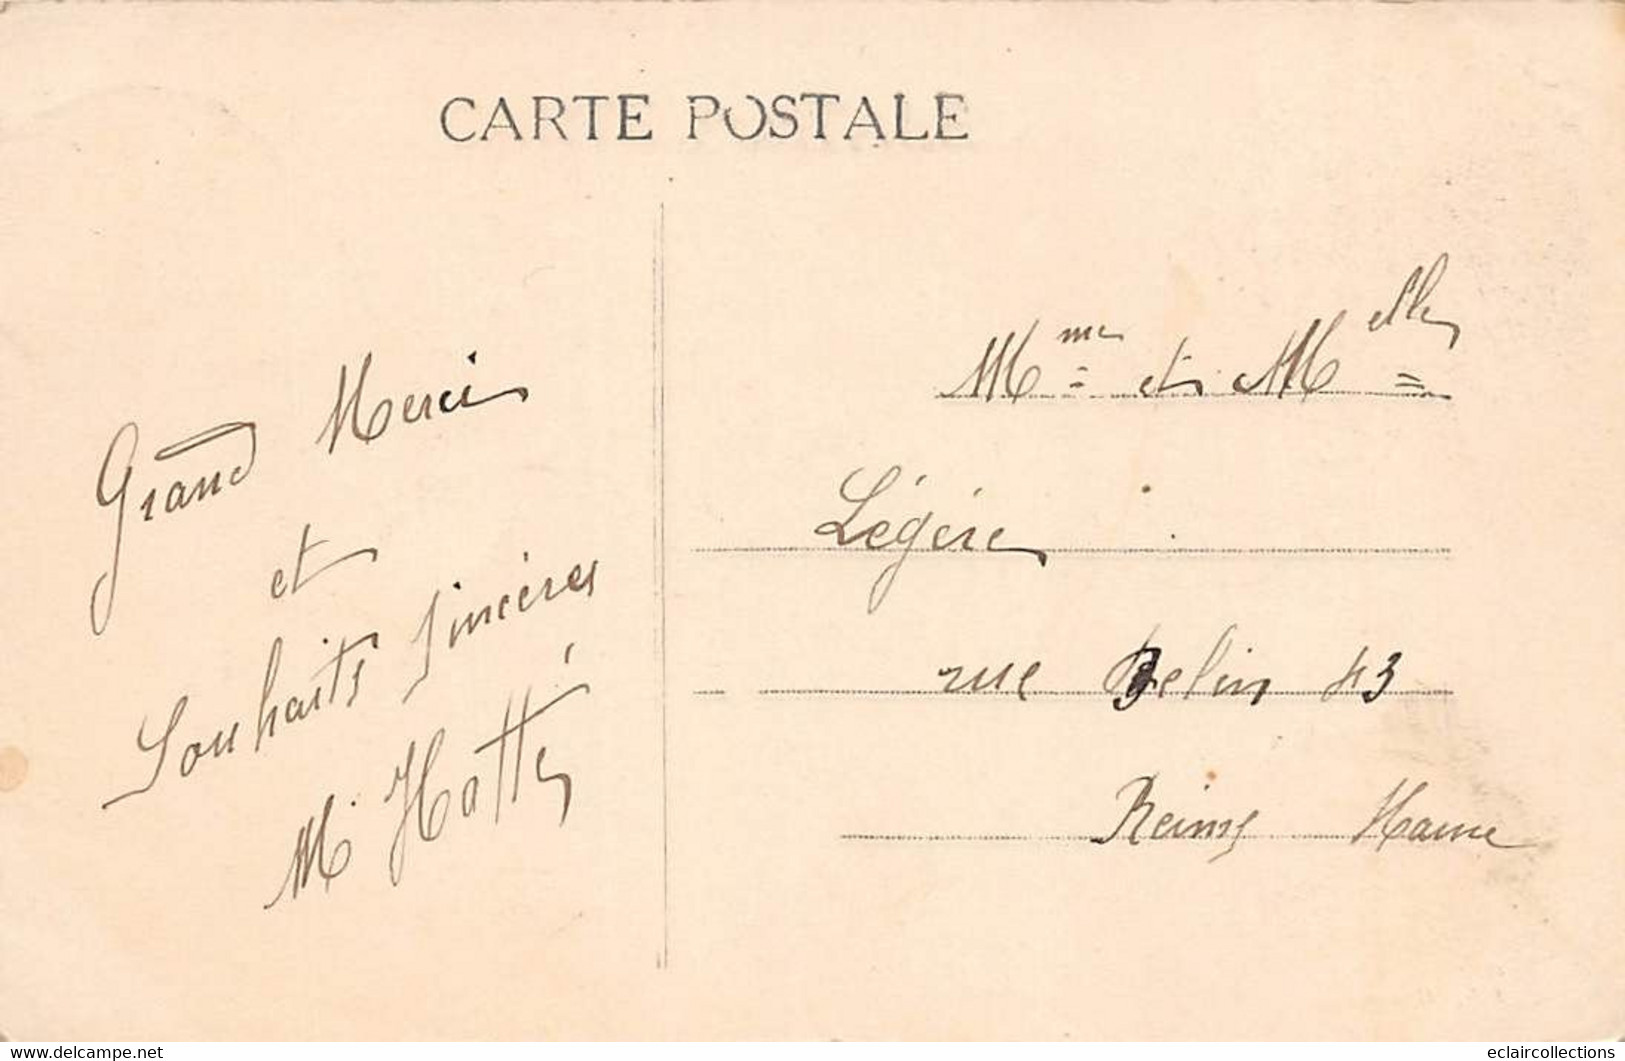 CARTE POSTALE
Grand Merci
et
Souhaits sincères
M Hatté
Mme et Melle
Légère
rue Belin 43
Reims Marne
www.delcampe.net
eclaircollections